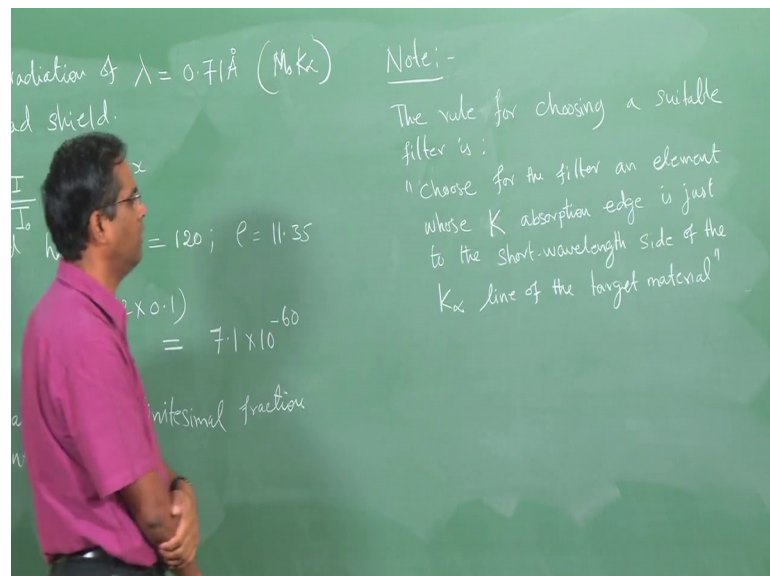 radiation of λ = 0.71Å (MoKα)
ad shield.
I
I₀
x
= 120; ρ = 11.35
2×0.1)
= 7.1×10⁻⁶⁰
initesimal fraction
Note:-
The rule for choosing a suitable
filter is:
"choose for the filter an element
whose K absorption edge is just
to the short-wavelength side of the
Kα line of the target material"